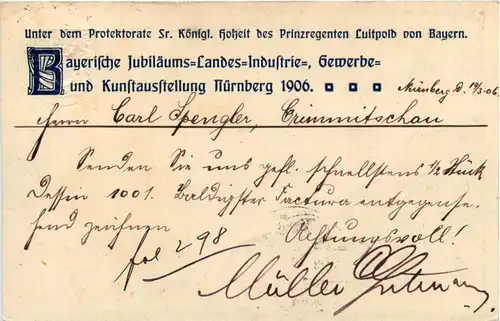 Unter dem Protektorate Sr. Königl. Hoheit des Prinzregenten Luitpold von Bayern.
Bayerische Jubiläums=Landes=Industrie=, Gewerbe=
und Kunstausstellung Nürnberg 1906.
Nürnberg d. 14/3.06
Herrn Carl Spengler, Crimmitschau
Senden Sie uns gefl. schnellstens 1/2 Stück
Dessin 1001. Baldigster Factura entgegense-
hend zeichnen
Achtungsvoll!
fol 298
Müller